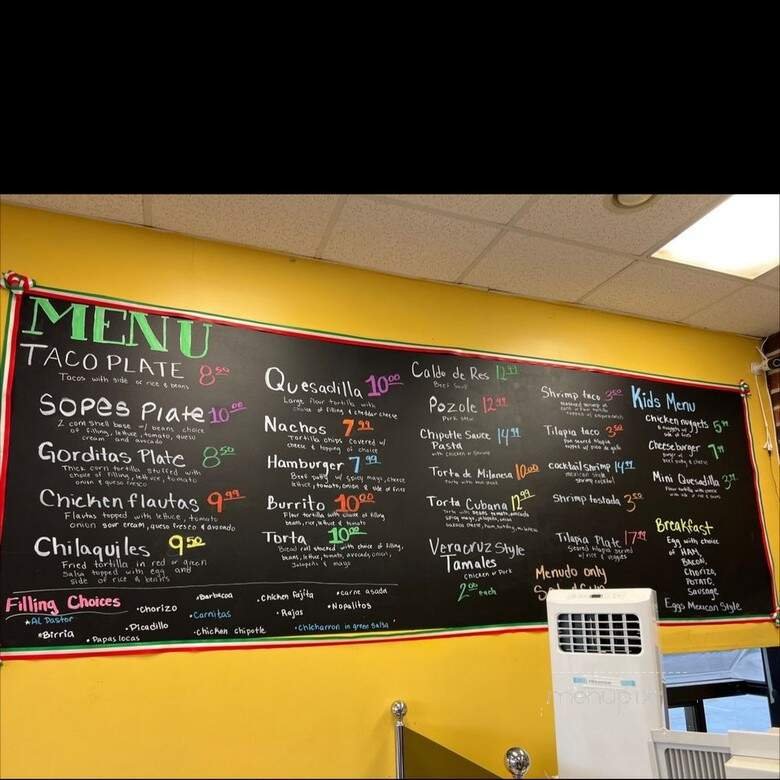 MENU
TACO PLATE 8 50
Tacos with side or rice & beans
SOPES Plate 10 00
2 corn shell base w/ beans choice
of filling, lettuce, tomato, queso
cream and avocado
Gorditas Plate 8 50
Thick corn tortilla stuffed with
choice of filling, lettuce, tomato
onion & queso fresco
Chicken flautas 9 99
Flautas topped with lettuce, tomato
onion sour cream, queso fresco & avocado
Chilaquiles 9 50
Fried tortilla in red or green
Salsa topped with egg and
side of rice & beans
Quesadilla 10 00
Large flour tortilla with
choice of filling & cheddar cheese
Nachos 7 99
Tortilla chips covered w/
cheese & topping of choice
Hamburger 7 99
Beef patty w/ spicy mayo, cheese
lettuce, tomato, onion & side of fries
Burrito 10 00
Flour tortilla with choice of filling
beans, rice, lettuce & tomato
Torta 10 00
Bread roll stuffed with choice of filling,
beans, lettuce, tomato, avocado, onion,
Jalapeño & mayo
Caldo de Res 12 99
Beef Soup
Pozole 12 99
Pork stew
Chipotle Sauce 14 99
Pasta
with chicken or shrimp
Torta de Milanesa 10 00
Torta Cubana 12 99
Veracruz Style
Tamales
chicken or Pork
2 00 each
Shrimp taco 3 50
Tilapia taco 3 50
cocktail shrimp 14 99
mexican style
shrimp cocktail
Shrimp tostada 3 50
Tilapia Plate 17 99
Seared tilapia served
w/ rice & veggies
Menudo only
Kids Menu
Chicken nuggets 5 99
Cheeseburger 7 99
Mini Quesadilla 3 99
Breakfast
Egg with choice
of HAM,
BACON,
CHORIZO,
POTATO,
SAUSAGE
Eggs Mexican Style
Filling Choices
•AL Pastor
•Birria
•Chorizo
•Picadillo
•Papas locas
•Barbacoa
•Carnitas
•Chicken chipotle
•Chicken Fajita
•Rajas
•Chicharron in green Salsa
•carne asada
•Nopalitos
menupix